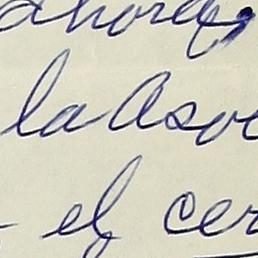 ahora,
la Aso
el cer